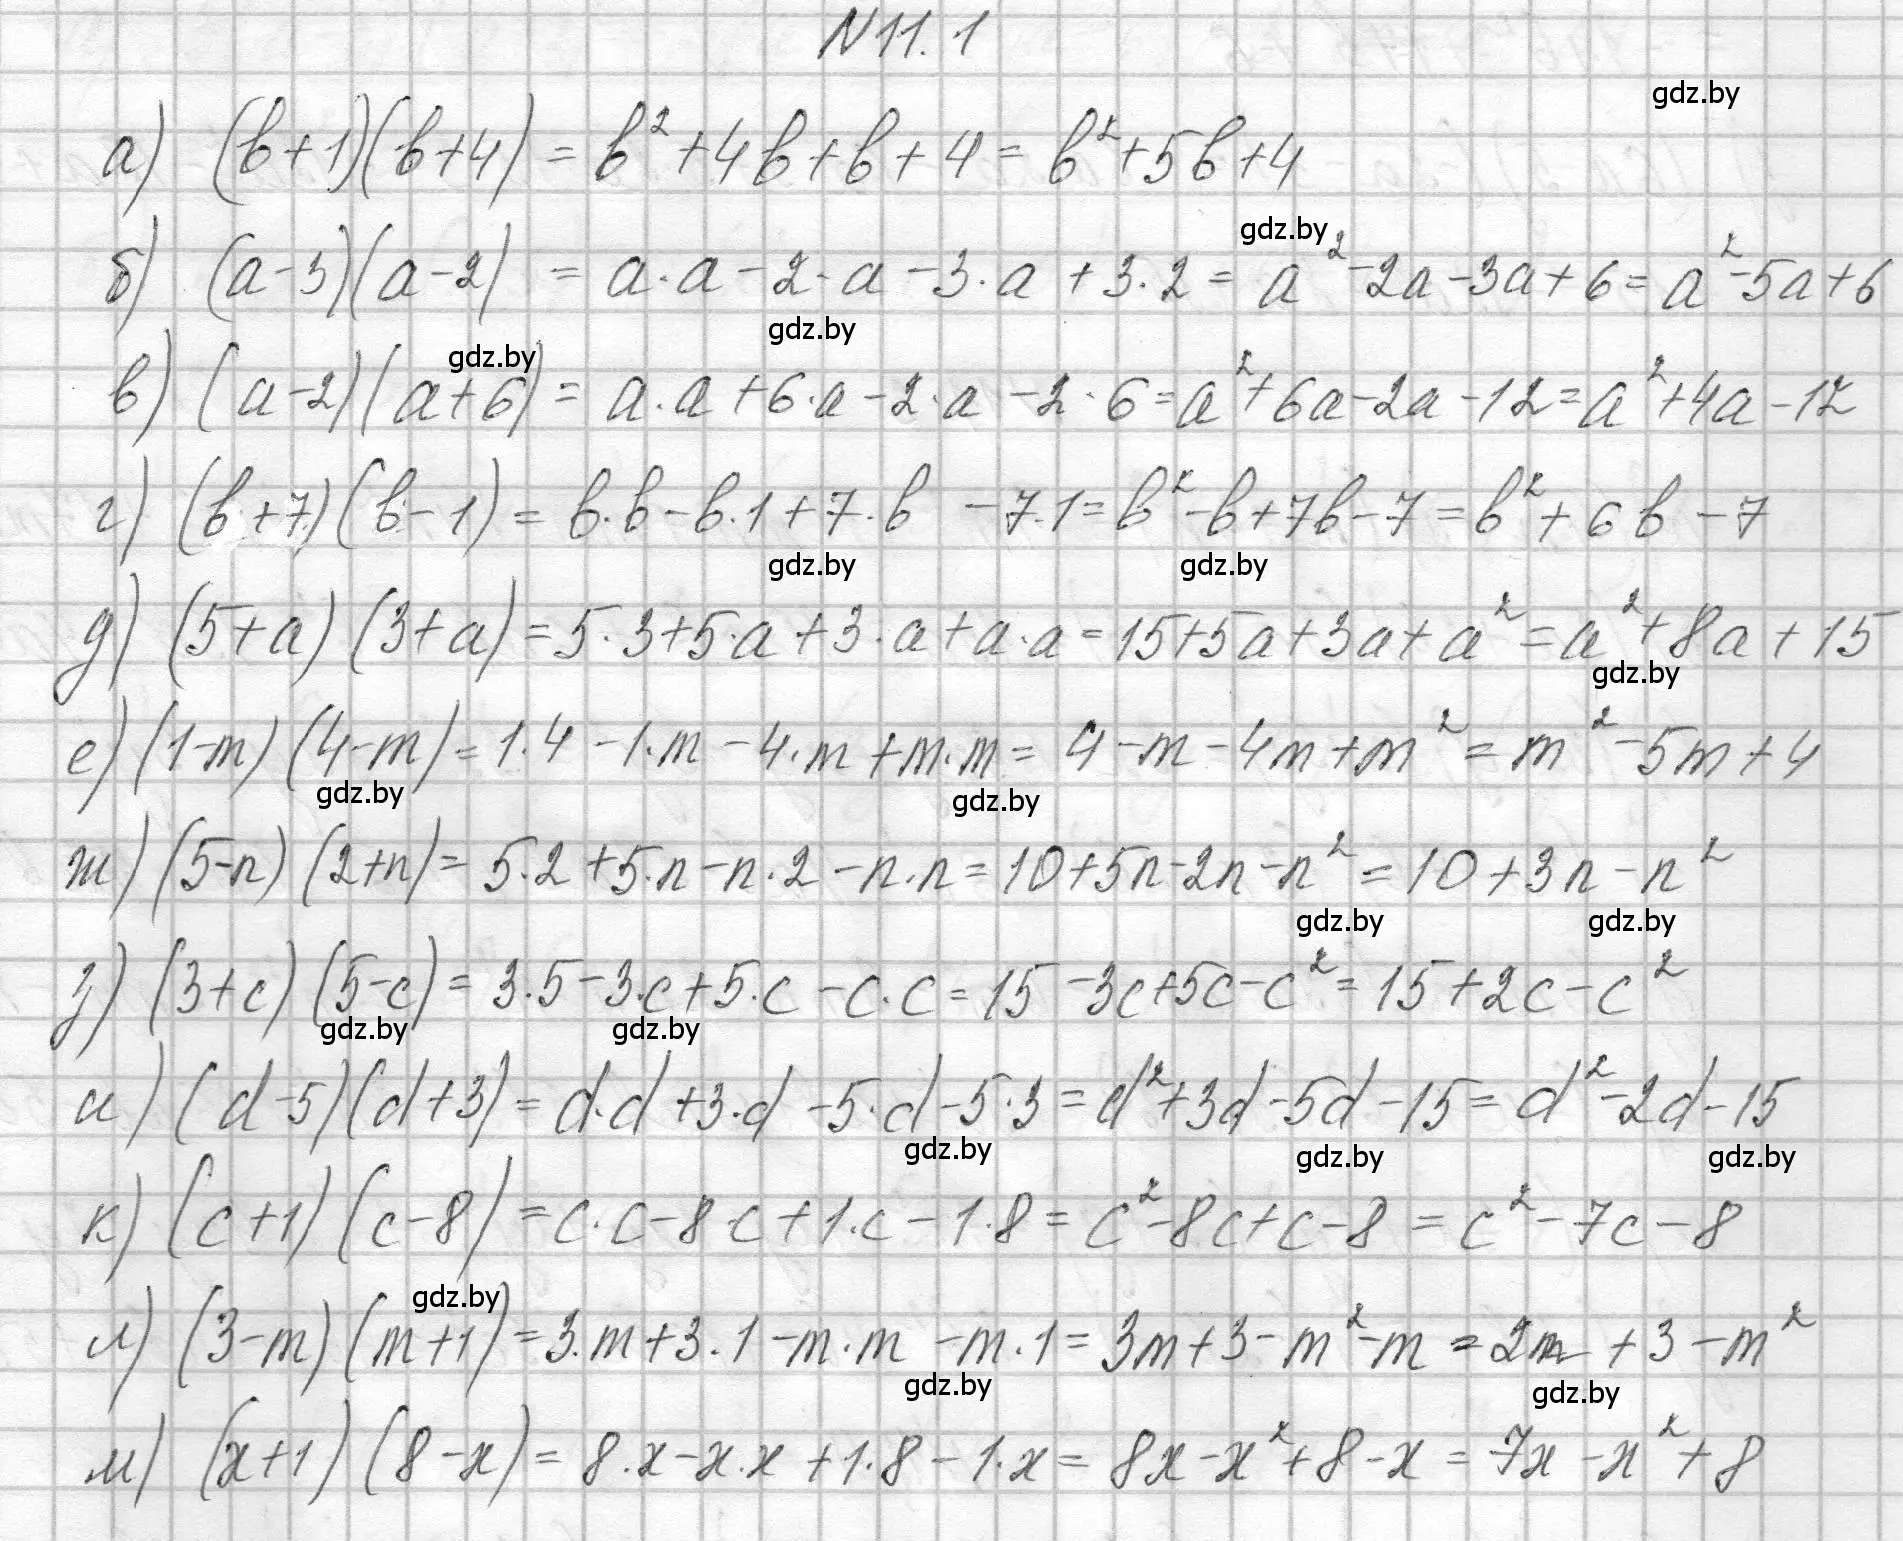 N 11. 1
gdz.by
а) (b+1)(b+4) = b²+4b+b+4 = b²+5b+4
gdz.by
б) (a-3)(a-2) = a·a-2·a-3·a+3·2 = a²-2a-3a+6 = a²-5a+6
gdz.by
gdz.by
в) (a-2)(a+6) = a·a+6·a-2·a-2·6 = a²+6a-2a-12 = a²+4a-12
г) (b+7)(b-1) = b·b-b·1+7·b-7·1 = b²-b+7b-7 = b²+6b-7
gdz.by gdz.by
д) (5+a)(3+a) = 5·3+5·a+3·a+a·a = 15+5a+3a+a² = a²+8a+15
gdz.by
е) (1-m)(4-m) = 1·4-1·m-4·m+m·m = 4-m-4m+m² = m²-5m+4
gdz.by gdz.by
ж) (5-n)(2+n) = 5·2+5·n-n·2-n·n = 10+5n-2n-n² = 10+3n-n²
gdz.by gdz.by
з) (3+c)(5-c) = 3·5-3·c+5·c-c·c = 15-3c+5c-c² = 15+2c-c²
gdz.by gdz.by
и) (d-5)(d+3) = d·d+3·d-5·d-5·3 = d²+3d-5d-15 = d²-2d-15
gdz.by gdz.by gdz.by
к) (c+1)(c-8) = c·c-8·c+1·c-1·8 = c²-8c+c-8 = c²-7c-8
gdz.by
л) (3-m)(m+1) = 3·m+3·1-m·m-m·1 = 3m+3-m²-m = 2m+3-m²
gdz.by gdz.by
м) (x+1)(8-x) = 8·x-x·x+1·8-1·x = 8x-x²+8-x = 7x-x²+8